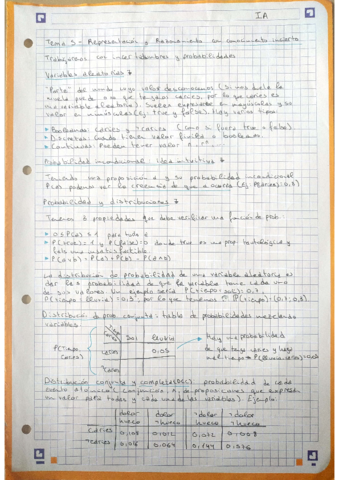 IA
Tema 5 - Representación y Razonamiento con conocimiento incierto
Trabajaremos con incertidumbres y probabilidades
Variables aleatorias
"Parte" del mundo cuyo valor desconocemos (Si nos duele la
muela puede o no que tengamos caries, por lo que caries es
una variable aleatoria). Suelen expresarse en mayúsculas y su
valor en minúsculas (ej: true y false). Hay varios tipos:
• Booleanas: caries y ¬caries (como si fuera true o false)
• Discretas: cuando tienen valor finito o booleano.
• Continuas: Pueden tener valor
Probabilidad incondicional: idea intuitiva
Tenemos una proposición a y su probabilidad incondicional
P(a) podemos ver la creencia de que a ocurra (ej: P(caries)=0,1)
Probabilidad y distribuciones
Tenemos 3 propiedades que debe verificar una función de prob.
• 0≤P(a)≤1 para todo a
• P(true)=1 y P(false)=0 donde true es una prop. tautológica y
false una insatisfactible
• P(a∨b)=P(a)+P(b)-P(a∧b)
La distribución de probabilidad de una variable aleatoria es
dar la probabilidad de que la variable tome cada uno
de sus valores. Un ejemplo sería P(tiempo=sol)=0,7,
P(tiempo=lluvia)=0,3, por lo que tenemos P(tiempo)=(0,7;0,3)
Distribución de prob. conjunta: tabla de probabilidades mezclando
variables.
P(Tiempo, caries)
Sol lluvia
caries 0.05
¬caries
Hay una probabilidad
de que haya caries y haga
mal tiempo
Distribución conjunta y completa (DCC): probabilidad de cada
evento atómico (conjunción de proposiciones que expresan
un valor para todas y cada una de las variables) Ejemplo
dolor dolor ¬dolor ¬dolor
hueco ¬hueco hueco ¬hueco
caries 0,108 0,012 0,072 0,008
¬caries 0,016 0,064 0,144 0,576